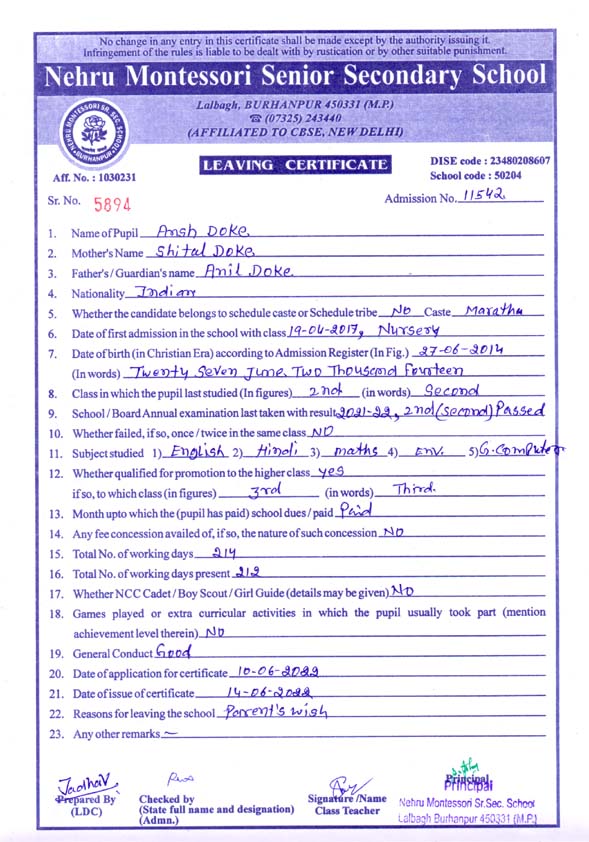 No change in any entry in this certificate shall be made except by the authority issuing it.
Infringement of the rules is liable to be dealt with by rustication or by other suitable punishment.
Nehru Montessori Senior Secondary School
Lalbagh, BURHANPUR 450331 (M.P.)
☎ (07325) 243440
(AFFILIATED TO CBSE, NEW DELHI)
NEHRU MONTESSORI SR. SEC. SCHOOL
BURHANPUR
LEAVING CERTIFICATE
DISE code : 23480208607
School code : 50204
Aff. No. : 1030231
Sr. No. 5894
Admission No. 11542
1. Name of Pupil Ansh Doke
2. Mother's Name Shital Doke
3. Father's / Guardian's name Anil Doke
4. Nationality Indian
5. Whether the candidate belongs to schedule caste or Schedule tribe NO Caste Maratha
6. Date of first admission in the school with class 19-04-2017, Nursery
7. Date of birth (in Christian Era) according to Admission Register (In Fig.) 27-06-2014
(In words) Twenty Seven June Two Thousand Fourteen
8. Class in which the pupil last studied (In figures) 2nd (in words) Second
9. School / Board Annual examination last taken with result 2021-22, 2nd (second) Passed
10. Whether failed, if so, once / twice in the same class NO
11. Subject studied 1) English 2) Hindi 3) maths 4) Env. 5) G.Computer
12. Whether qualified for promotion to the higher class yes
if so, to which class (in figures) 3rd (in words) Third.
13. Month upto which the (pupil has paid) school dues / paid Paid
14. Any fee concession availed of, if so, the nature of such concession NO
15. Total No. of working days 214
16. Total No. of working days present 212
17. Whether NCC Cadet / Boy Scout / Girl Guide (details may be given) NO
18. Games played or extra curricular activities in which the pupil usually took part (mention
achievement level therein) NO
19. General Conduct Good
20. Date of application for certificate 10-06-2022
21. Date of issue of certificate 14-06-2022
22. Reasons for leaving the school Parent's wish
23. Any other remarks —
Jadhav
Prepared By
(LDC)
Checked by
(State full name and designation)
(Admn.)
Signature /Name
Class Teacher
Principal
Principal
Nehru Montessori Sr.Sec. School
Lalbagh Burhanpur 450331 (M.P.)